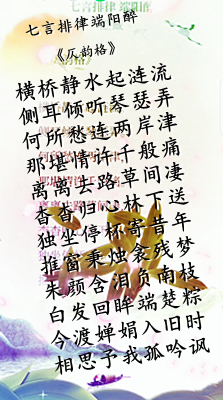 七言排律端阳醉
《仄韵格》
横桥静水起涟流
侧耳倾听琴瑟弄
何所愁连两岸津
那堪情许千般痛
离离去路草间凄
杳杳归心林下送
独坐停杯寄昔年
推窗秉烛衾残梦
朱颜含泪负南枝
白发回眸端楚粽
今渡婵娟入旧时
相思予我孤吟讽